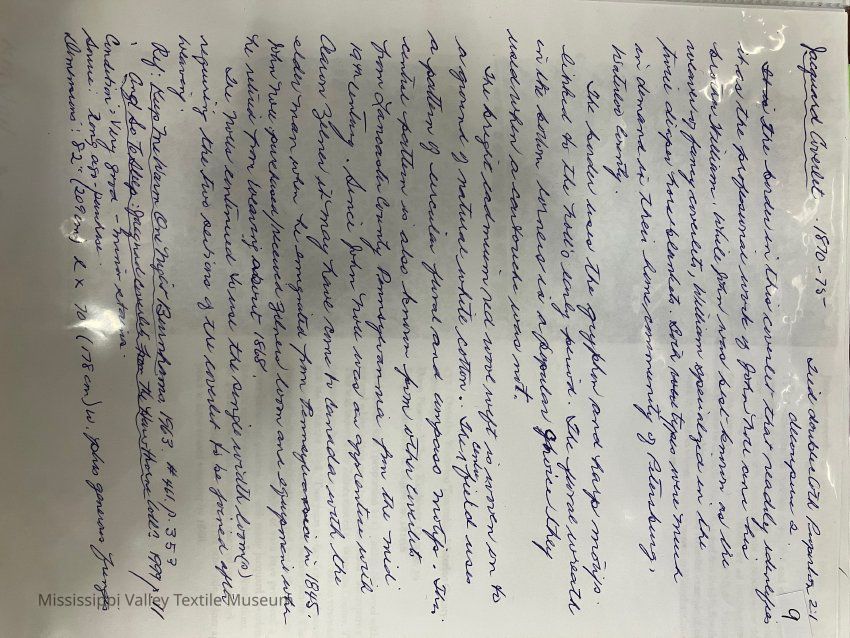 Jacquard Coverlet 1870-75 Tied doublecloth Proportion 2:1
decoupure 2. 9
It is the border in this coverlet that readily identifies
it as the professional work of John Noll and his
brother William. While John was best known as the
weaver of fancy coverlets, William specialized in the
twill diaper horse blankets. Both were types were much
in demand in their home community of Petersburg,
Waterloo County.
The border uses the gryphon and harp motifs
linked to the Noll's early period. The floral wreath
in the bottom corners is a popular choice they
used when a cartouche was not.
The bright cadmium red wool weft is woven on to
a ground of natural white cotton. The center field uses
a pattern of circular floral and compass motifs. This
central pattern is also known from other coverlets
from Lancaster County Pennsylvania from the mid
19th century. Since John Noll was an apprentice with
Aaron Zelner it may have come to Canada with the
older man when he emigrated from Pennsylvania in 1845.
John Noll purchased/received Zelner's loom and equipment when
he retired from weaving about 1868.
The Nolls continued to use the single width loom(s)
requiring the two sections of the coverlet to be joined after
weaving.
Ref: Keep Me Warm One Night Burnhams, 1963. #461, p. 353
Jacquard coverlets from the 1997, p. 11
Condition: Very good - minor stains.
Source: Long ago purchase
Dimensions: 82" (209cm) L x 70" (178 cm) W. plus generous fringes
Mississippi Valley Textile Museum